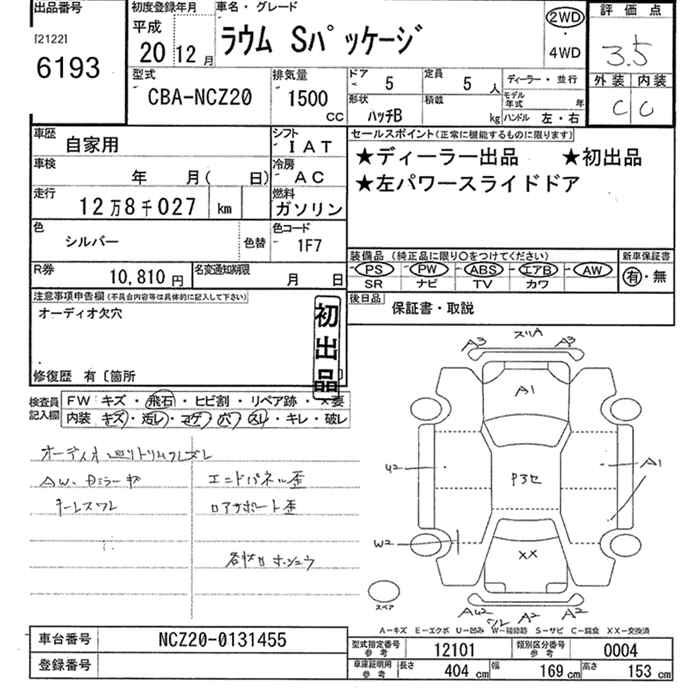 出品番号
[2122]
6193
初度登録年月
平成
20 12月
車名・グレード
ラウム Sパッケージ
2WD
・
4WD
評価点
3.5
外装 内装
C C
型式
CBA-NCZ20
排気量
1500
CC
ドア
5
定員
5 人
形状
ハッチB
積載
kg
ディーラー・並行
モデル年式 年
ハンドル 左・右
車歴
自家用
シフト
IAT
車検
年 月( 日)
冷房
AC
走行
12万8千027 km
燃料
ガソリン
色
シルバー
色替
色コード
1F7
R券
10,810円
名変通知期限
月 日
セールスポイント(正常に機能するものに限ります)
★ディーラー出品 ★初出品
★左パワースライドドア
装備品 (純正品に限り○をつけてください)
PS PW ABS エアB AW
SR ナビ TV カワ
新車保証書
有・無
後日品
保証書・取説
注意事項申告欄(不具合内容等は具体的に記入して下さい)
オーディオ欠穴
初出品
修復歴 有〔箇所
検査員記入欄
FW キズ・飛石・ヒビ割・リペア跡・×要
内装 キズ・汚レ・コゲ・穴・スレ・キレ・破レ
AW、
エンドパネル歪
ロアサポート歪
A3
A3
A1
U2
P3セ
A1
W2
XX
スペア
AW2
A2
A2
A－キズ E－エクボ U－凹み W－補修跡 S－サビ C－腐食 XX－交換済
車台番号
NCZ20-0131455
登録番号
型式指定番号 参考
12101
類別区分番号 参考
0004
車庫証明用 参考
長さ 404 cm
幅 169 cm
高さ 153 cm